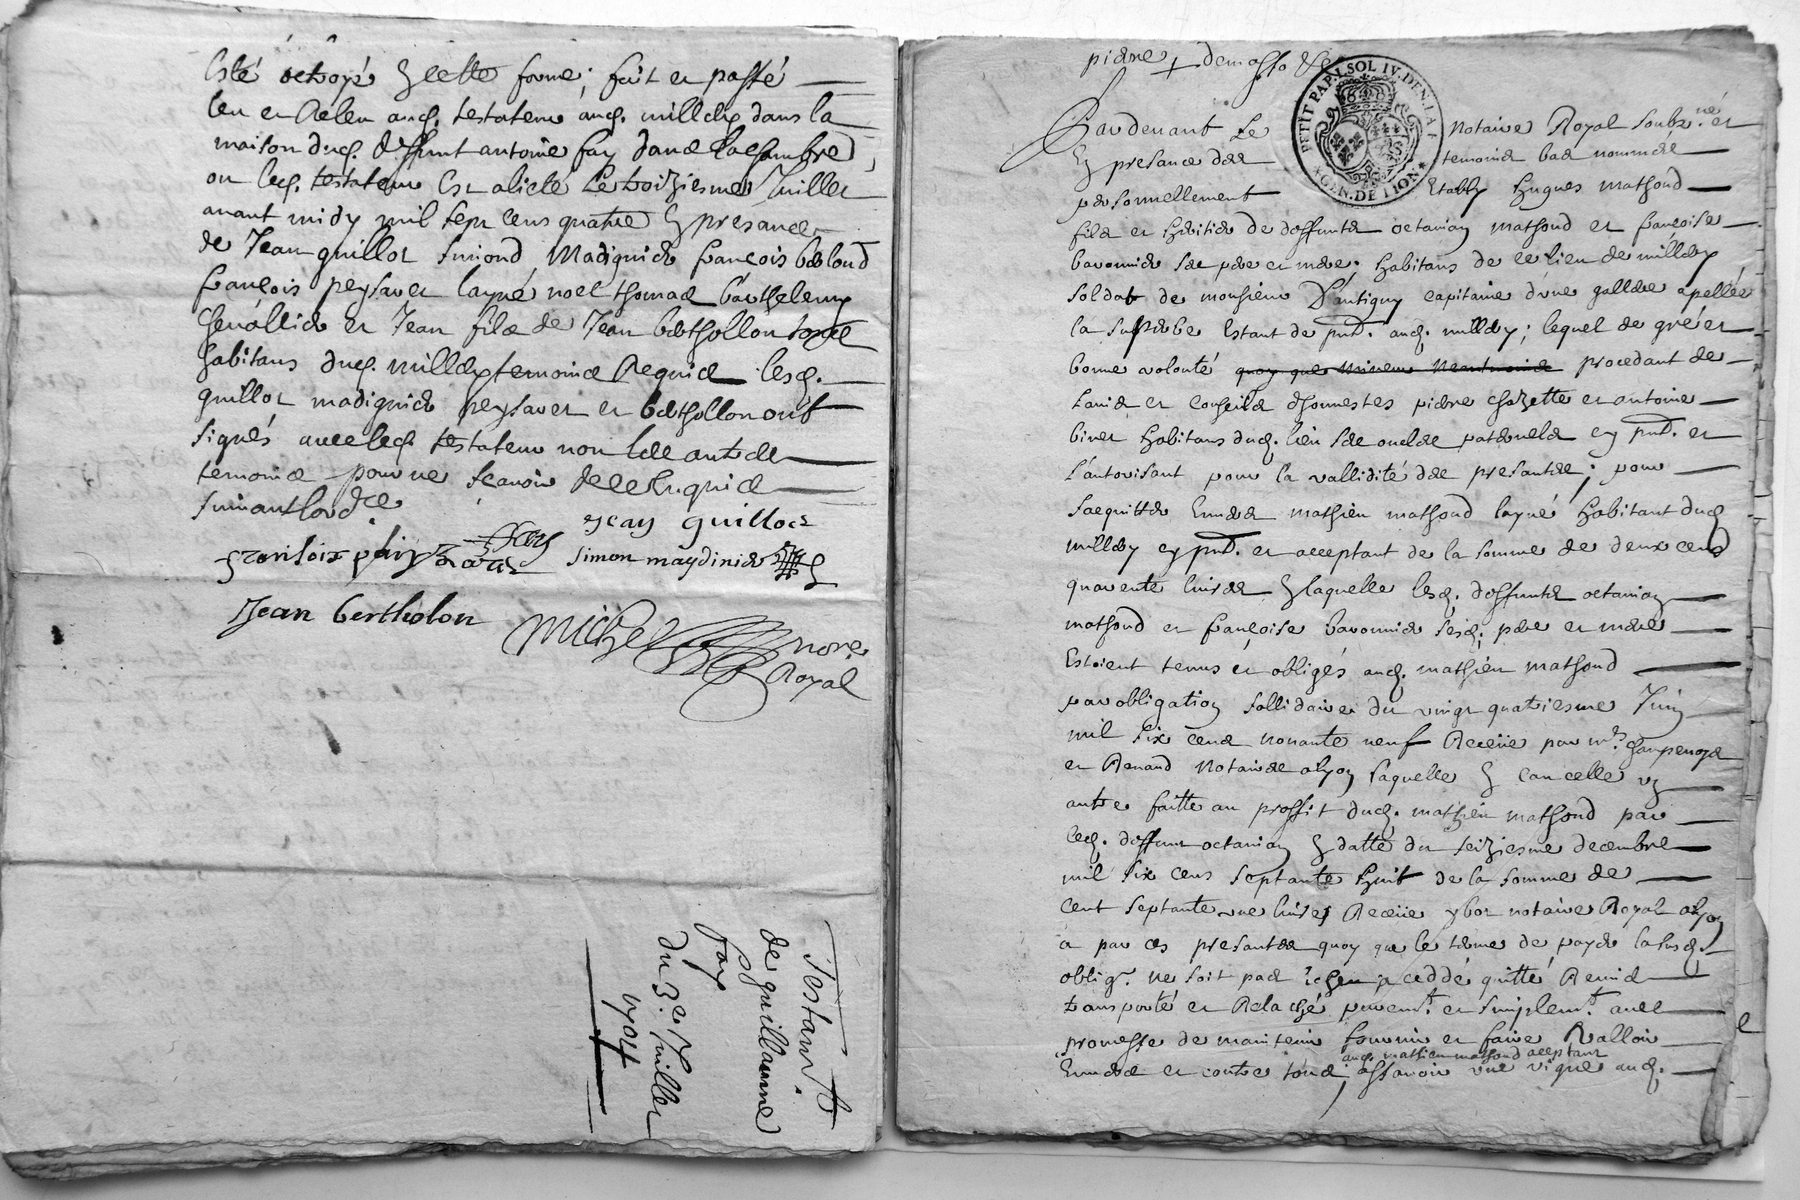 esté octroyé en cette forme; fait et passé
leu et releu aud. testateur aud. millery dans la
maison dud. deffunt antoine fay dans la chambre
ou led. testateur est alicté le troiziesme Juillet
avant midy mil sept cens quatre en presance
de Jean guillot simond Madignier françois
françois peysaret layné noel thomas barthelemy
et Jean fils de Jean berthollon tous
habitans dud. millery temoins requis lesd.
guillot madignier peysaret et berthollon ont
signés avec led. testateur non les autres
temoins pour ne scavoir de ce enquis
suivant lordre
Jean guillot
fransoix simon maydinier
Jean bertholon
Michel nore
Royal
Testam.t
de guillaume
fay
du 3e Juillet
1704
pierre
PETIT PAP. 1 SOL IV. DEN. LA F
GEN. DE LION
Pardevant le Notaire Royal soubz.né et
en presance des temoins bas nommés
personnellement Estably Hugues mathond
fils et heritier de deffuntz octavian mathond et françoise
baronnier ses pere et mere; habitans de ce lieu de millery
soldat de monsieur d'antigny capitaine d'une gallere apellée
la superbe estant de pnt. aud. millery; lequel de gré et
bonne volonté quoy que mineur neantmoins procedant de
lavis et conseils d'honnestes pierre chazette et antoine
binet habitans dud. lieu ses oncles paternels en pnt. et
l'autorisant pour la vallidité des presantes; pour
sacquitter envers mathieu mathond layné habitant dud.
millery en pnt. et acceptant de la somme de deux cens
quarente livres en laquelle lesd. deffuntz octavian
mathond et françoise baronnier sesd. pere et mere
estoient tenus et obligés aud. mathieu mathond
par obligation sollidaire du vingt quatriesme Juin
mil six cens nonante neuf receüe par m.es
et Renaud Notaires a lyon laquelle en cancelle
autre faitte au proffit dud. mathieu mathond par
led. deffunt octavian en datte du seiziesme decembre
mil six cens septante huit de la somme de
cent septante une livres receüe ybot notaire Royal a lyon
a par ces presantes quoy que le terme de payer la susd.
oblig.n ne soit pas cedde quitté remis
transporté et relaché purem.t et simplem.t avec
promesse de maintenir fournir et faire valloir
aud. mathieu mathond aceptant
envers et contre tous; assavoir une vigne aud.